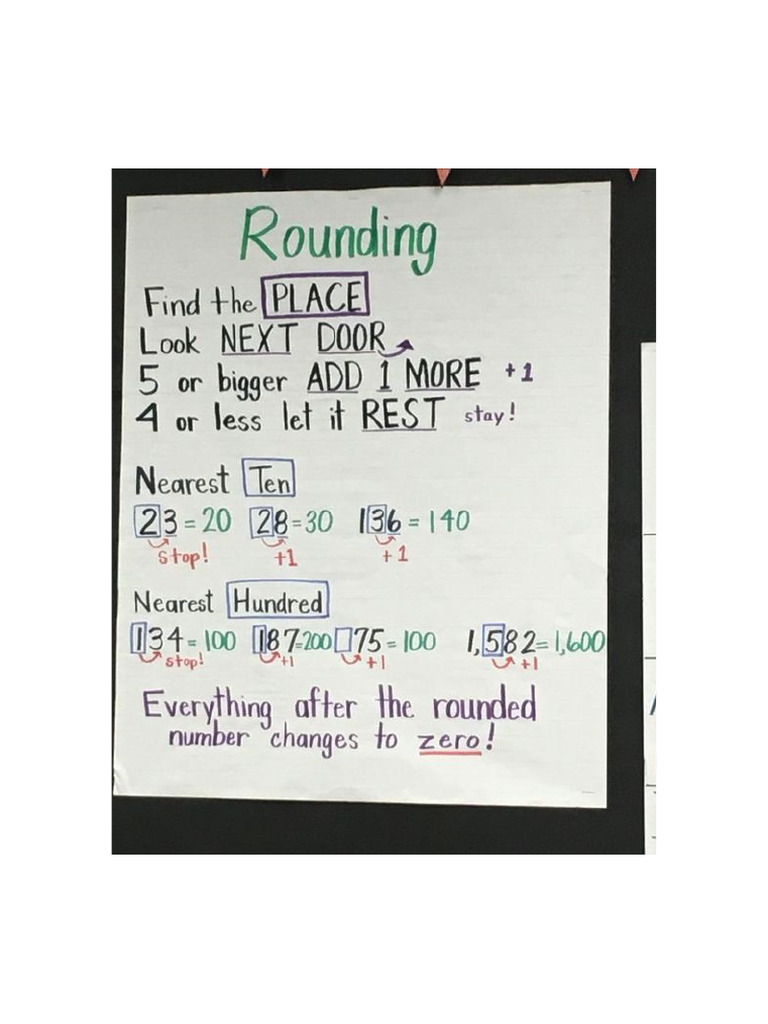 Rounding
Find the PLACE
Look NEXT DOOR
5 or bigger ADD 1 MORE +1
4 or less let it REST stay!
Nearest Ten
23=20 28=30 136=140
stop! +1 +1
Nearest Hundred
134=100 187=200 75=100 1,582=1,600
stop! +1 +1 +1
Everything after the rounded
number changes to zero!